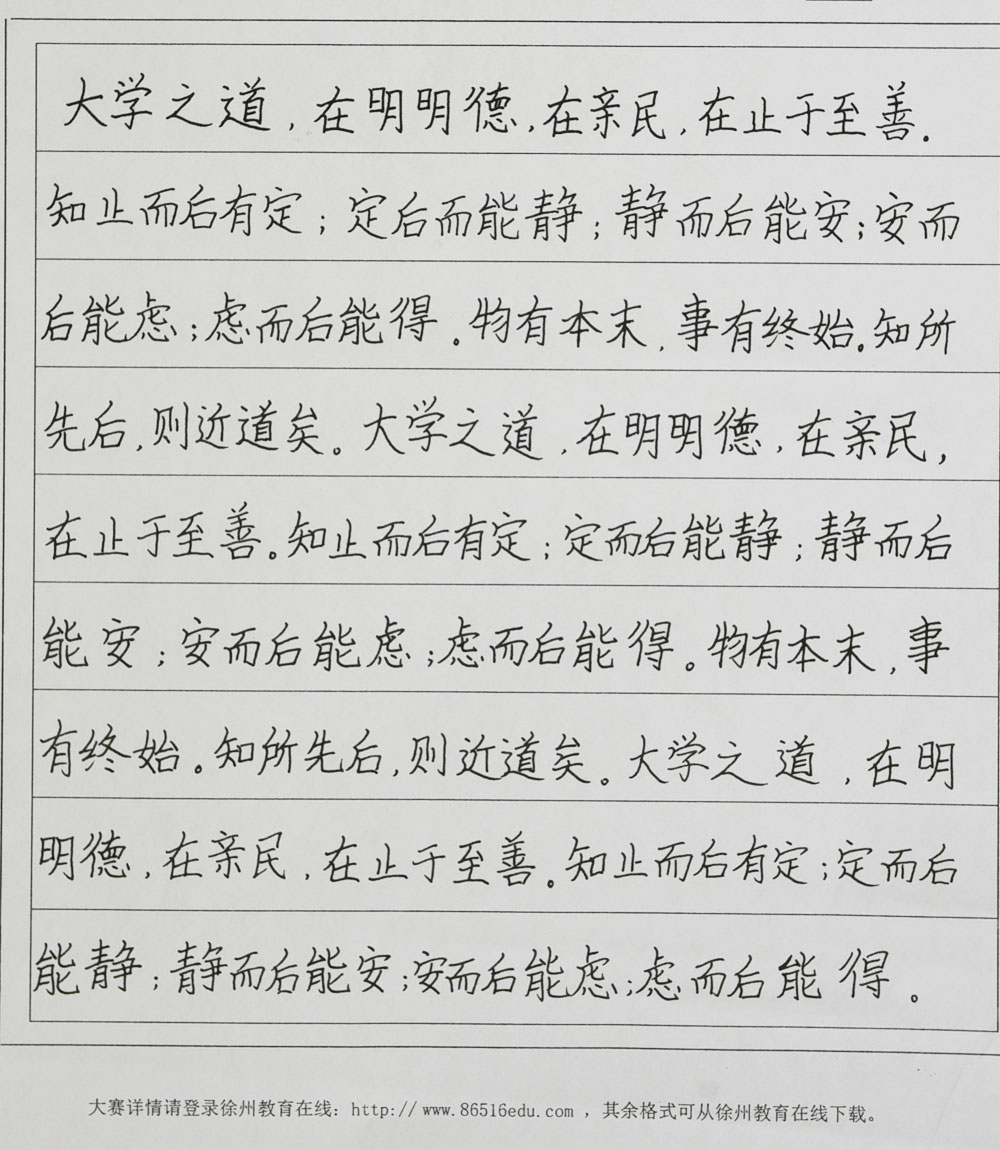 大学之道，在明明德，在亲民，在止于至善.
知止而后有定；定后而能静；静而后能安；安而
后能虑；虑而后能得。物有本末，事有终始。知所
先后，则近道矣。大学之道，在明明德，在亲民，
在止于至善。知止而后有定；定而后能静；静而后
能安；安而后能虑；虑而后能得。物有本末，事
有终始。知所先后，则近道矣。大学之道，在明
明德，在亲民，在止于至善。知止而后有定；定而后
能静；静而后能安；安而后能虑；虑而后能得。
大赛详情请登录徐州教育在线：http://www.86516edu.com ，其余格式可从徐州教育在线下载。